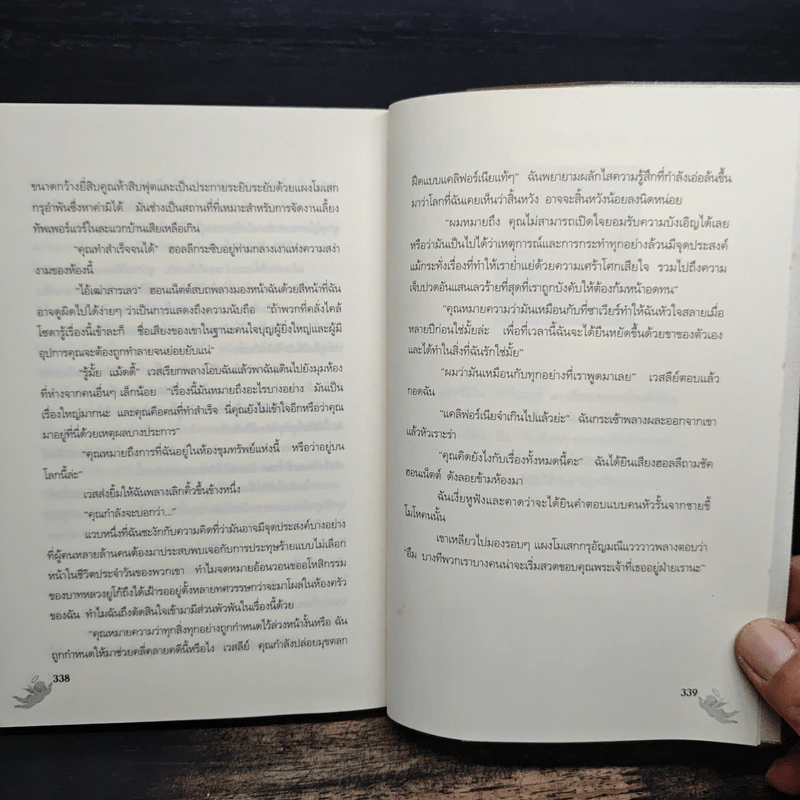 ขนาดกว้างยี่สิบคูณห้าสิบฟุตและเป็นประกายระยิบระยับด้วยแผงโมเสก
กรุอำพันซึ่งหาค่ามิได้ มันช่างเป็นสถานที่ที่เหมาะสำหรับการจัดงานเลี้ยง
ทัพเพอร์แวร์ในละแวกบ้านเสียเหลือเกิน
"คุณทำสำเร็จจนได้" ฮอลลีกระซิบอยู่ท่ามกลางเงาแห่งความสง่า
งามของห้องนี้
"ไอ้เฒ่าสารเลว" ฮอนเน็ตต์สบถพลางมองหน้าฉันด้วยสีหน้าที่ฉัน
อาจดูผิดไปได้ง่ายๆ ว่าเป็นการแสดงถึงความนับถือ "ถ้าพวกที่คลั่งไคล้
โซดารู้เรื่องนี้เข้าละก็ ชื่อเสียงของเขาในฐานะคนใจบุญผู้ยิ่งใหญ่และผู้มี
อุปการคุณจะต้องถูกทำลายจนย่อยยับแน่"
"รู้มั้ย แม้ดดี้" เวสเรียกพลางโอบฉันแล้วพาฉันเดินไปยังมุมห้อง
ที่ห่างจากคนอื่นๆ เล็กน้อย "เรื่องนี้มันหมายถึงอะไรบางอย่าง มันเป็น
เรื่องใหญ่มากนะ และคุณคือคนที่ทำสำเร็จ นี่คุณยังไม่เข้าใจอีกหรือว่าคุณ
มาอยู่ที่นี่ด้วยเหตุผลบางประการ"
"คุณหมายถึงการที่ฉันอยู่ในห้องขุมทรัพย์แห่งนี้ หรือว่าอยู่บน
โลกนี้ล่ะ"
เวสส่งยิ้มให้ฉันพลางเลิกคิ้วขึ้นข้างหนึ่ง
"คุณกำลังจะบอกว่า..."
แวบหนึ่งที่ฉันชะงักกับความคิดที่ว่ามันอาจมีจุดประสงค์บางอย่าง
ที่ผู้คนหลายล้านคนต้องมาประสบพบเจอกับการประทุษร้ายแบบไม่เลือก
หน้าในชีวิตประจำวันของพวกเขา ทำไมจดหมายอ้อนวอนขออโหสิกรรม
ของบาทหลวงยูโก้ถึงได้เฝ้ารออยู่ตั้งหลายทศวรรษกว่าจะมาโผล่ในห้องครัว
ของฉัน ทำไมฉันถึงตัดสินใจเข้ามามีส่วนพัวพันในเรื่องนี้ด้วย
"คุณหมายความว่าทุกสิ่งทุกอย่างถูกกำหนดไว้ล่วงหน้างั้นหรือ ฉัน
ถูกกำหนดให้มาช่วยคลี่คลายคดีนี้หรือไง เวสลีย์ คุณกำลังปล่อยมุขตลก
338
ฝืดแบบแคลิฟอร์เนียแท้ๆ" ฉันพยายามผลักไสความรู้สึกที่กำลังเอ่อล้นขึ้น
มาว่าโลกที่ฉันเคยเห็นว่าสิ้นหวัง อาจจะสิ้นหวังน้อยลงนิดหน่อย
"ผมหมายถึง คุณไม่สามารถเปิดใจยอมรับความบังเอิญได้เลย
หรือว่ามันเป็นไปได้ว่าเหตุการณ์และการกระทำทุกอย่างล้วนมีจุดประสงค์
แม้กระทั่งเรื่องที่ทำให้เราย่ำแย่ด้วยความเศร้าโศกเสียใจ รวมไปถึงความ
เจ็บปวดอันแสนเลวร้ายที่สุดที่เราถูกบังคับให้ต้องก้มหน้าอดทน"
"คุณหมายความว่ามันเหมือนกับที่ซาเวียร์ทำให้ฉันหัวใจสลายเมื่อ
หลายปีก่อนใช่มั้ยล่ะ เพื่อที่เวลานี้ฉันจะได้ยืนหยัดขึ้นด้วยขาของตัวเอง
และได้ทำในสิ่งที่ฉันรักใช่มั้ย"
"ผมว่ามันเหมือนกับทุกอย่างที่เราพูดมาเลย" เวสลีย์ตอบแล้ว
กอดฉัน
"แคลิฟอร์เนียจ๋าเกินไปแล้วย่ะ" ฉันกระเซ้าพลางผละออกจากเขา
แล้วหัวเราะร่า
"คุณคิดยังไงกับเรื่องทั้งหมดนี้คะ" ฉันได้ยินเสียงฮอลลีถามชัค
ฮอนเน็ตต์ ดังลอยข้ามห้องมา
ฉันเงี่ยหูฟังและคาดว่าจะได้ยินคำตอบแบบคนหัวรั้นจากชายขี้
โมโหคนนั้น
เขาเหลียวไปมองรอบๆ แผงโมเสกกรุอัญมณีแวววาวพลางตอบว่า
"อืม บางทีพวกเราบางคนน่าจะเริ่มสวดขอบคุณพระเจ้าที่เธออยู่ฝ่ายเรานะ"
339